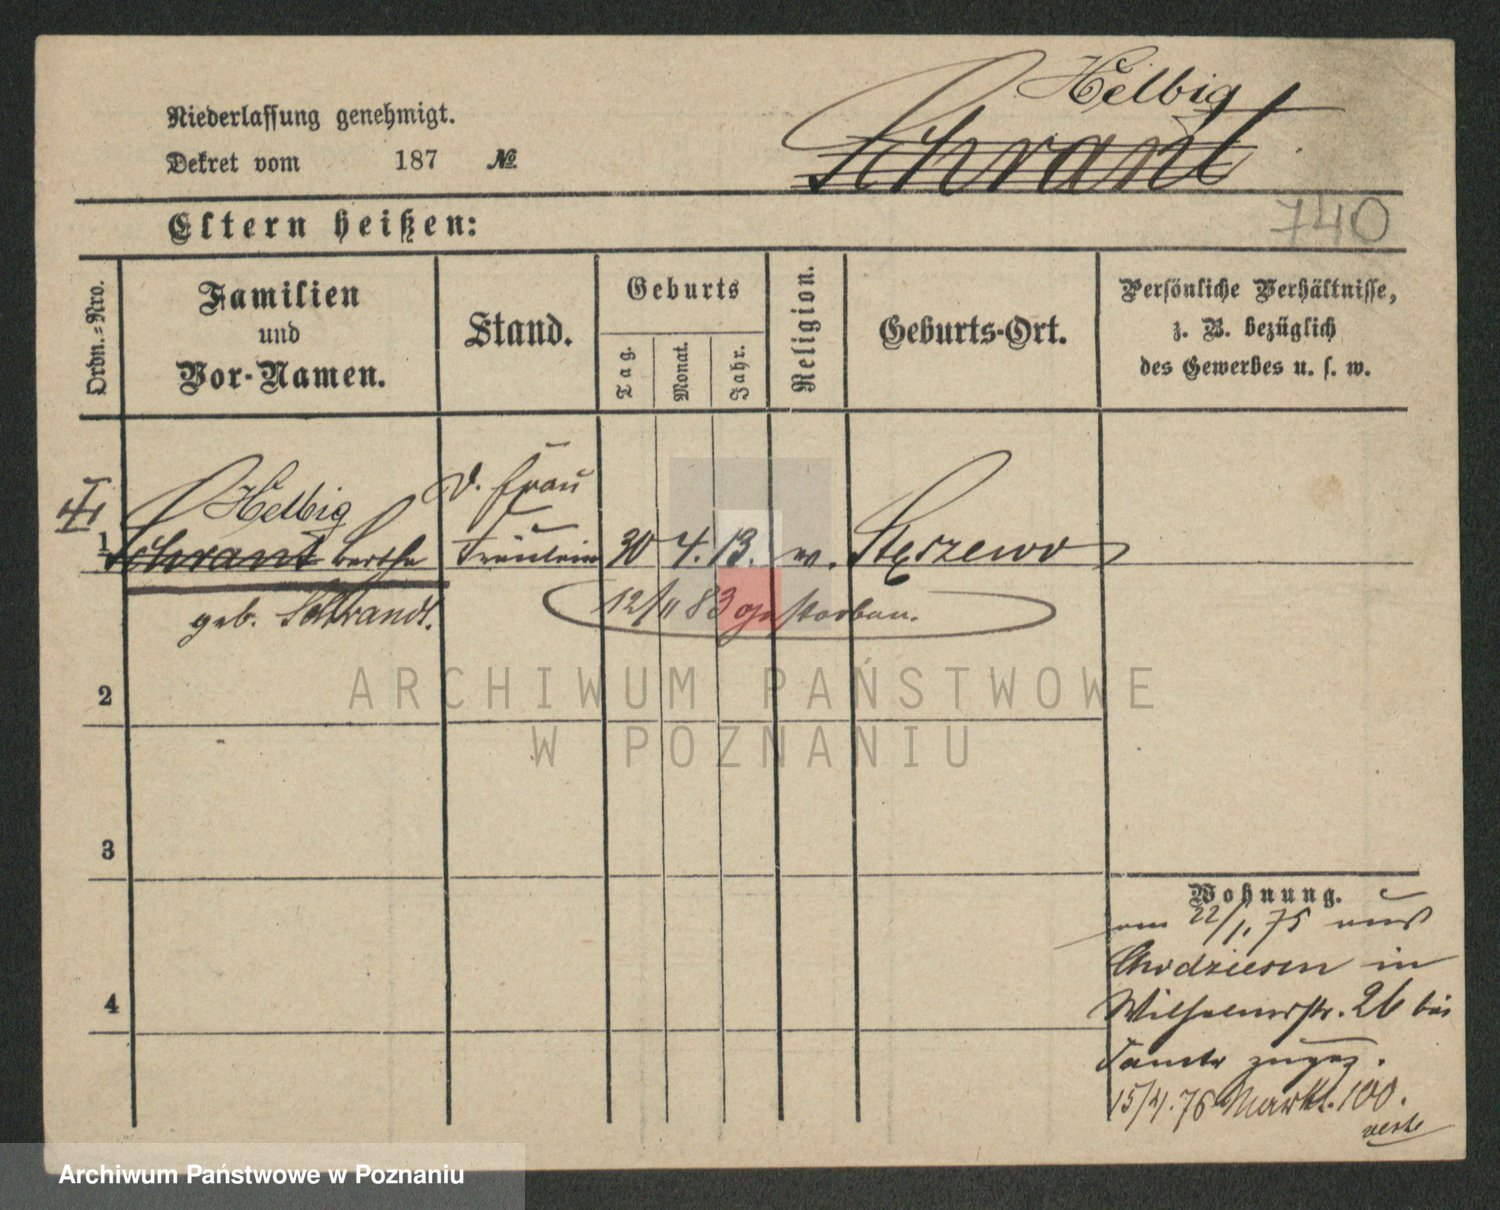 Helbig
Schrant
Niederlassung genehmigt.
Dekret vom 187 №
740
Eltern heißen:
Ordn.=Nro.
Familien
und
Vor-Namen.
Stand.
Geburts
Tag.
Monat.
Jahr.
Religion.
Geburts-Ort.
Persönliche Verhältnisse,
z. B. bezüglich
des Gewerbes u. s. w.
Helbig
d. Frau
1 Schrant Bertha Fräulein 30 4. 13. Stęszewo
geb. Schrandt.
12/11 83 gestorben.
ARCHIWUM PAŃSTWOWE
W POZNANIU
2
3
4
Wohnung.
am 22/1. 75 aus
Chodziesen in
Wilhelmsstr. 26 bei
zugez.
15/4. 76 Markt. 100.
Archiwum Państwowe w Poznaniu